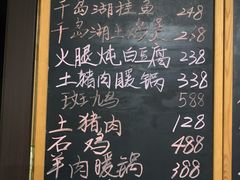 千岛湖桂鱼 248
千岛湖土鸡煲 238
火腿炖白豆腐 238
土猪肉暖锅 238
斑鸠 588
土猪肉 128
石鸡 488
羊肉暖锅 388